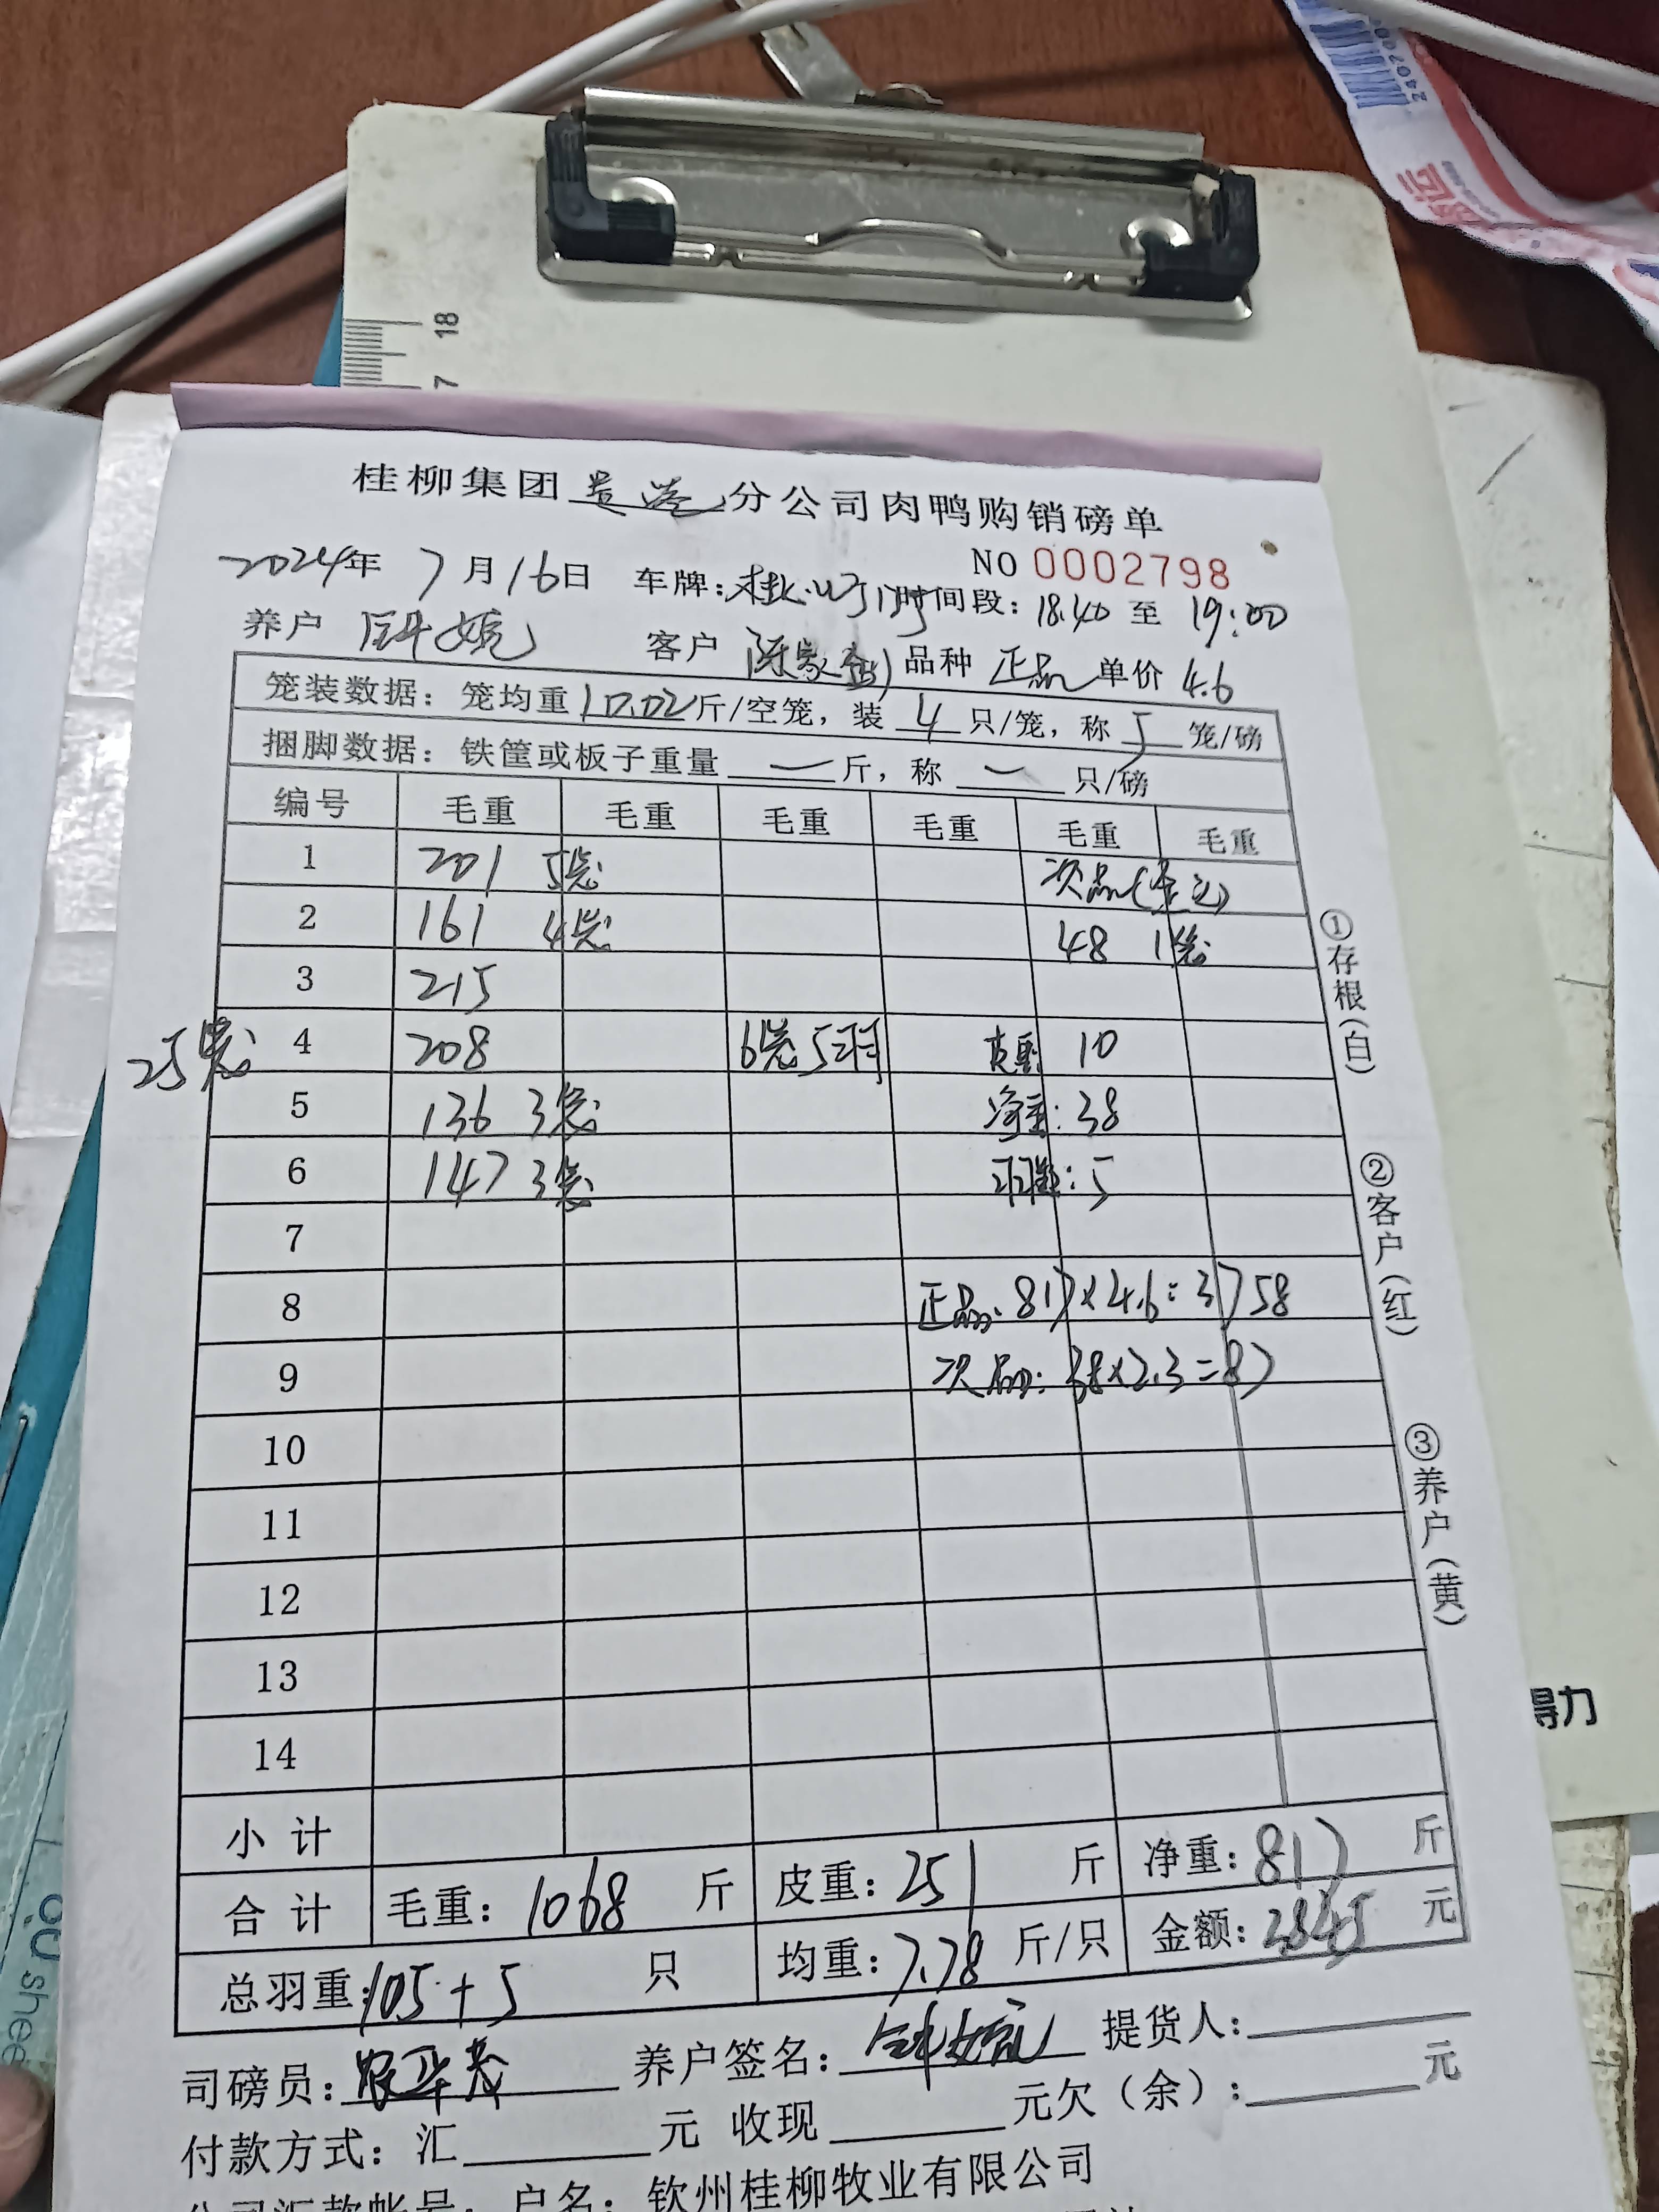 18
7
桂柳集团贵港分公司肉鸭购销磅单
NO 0002798
2024年 7月16日 车牌: 时间段: 18:40 至 19:00
养户 钟婉 客户 陈家 品种 正品 单价 4.6
笼装数据: 笼均重 10.02 斤/空笼, 装 4 只/笼, 称 5 笼/磅
捆脚数据: 铁筐或板子重量 一 斤, 称 一 只/磅
编号 毛重 毛重 毛重 毛重 毛重 毛重
1 201 5笼 次品(
2 161 4笼 48 1笼
3 215
25笼 4 208 6笼5羽 皮重 10
5 136 3笼 净重: 38
6 147 3笼 羽数: 5
7
8 正品: 817×4.6=3758
9 次品: 38×2.3=87
10
11
12
13
14
小计
合计 毛重: 1068 斤 皮重: 251 斤 净重: 817 斤
总羽重: 105+5 只 均重: 7.78 斤/只 金额: 3845 元
司磅员: 养户签名: 钟婉 提货人:
付款方式: 汇 元 收现 元欠(余): 元
户名: 钦州桂柳牧业有限公司
①存根(白)
②客户(红)
③养户(黄)
得力